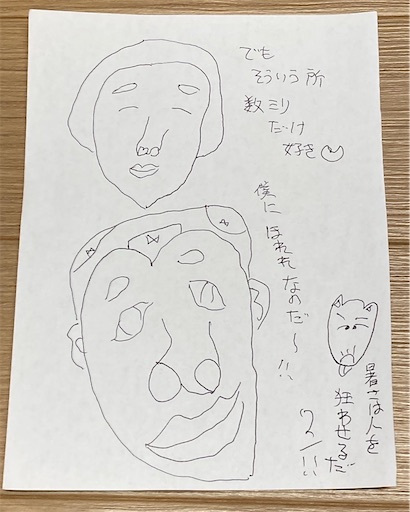 でも
そういう所
数ミリ
だけ
好き
僕に ほれれ なのだ〜!!
暑さは人を
狂わせるだ
ワン!!